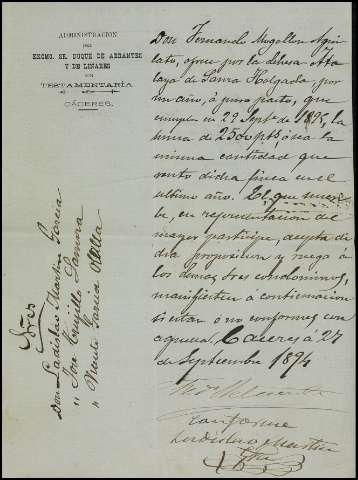 ADMINISTRACION
DEL
EXCMO. SR. DUQUE DE ABRANTES
Y DE LINARES
SU
TESTAMENTARÍA
CÁCERES.
Don Fernando Mogollon
ofrece por la dehesa Ata
laya de Sierra Holgada, por
un año, á puro pasto, que
cumple en 29 Septe. de 1895, la
suma de 2500 pts, ó sea la
misma cantidad que
rentó dicha finca en el
ultimo año. El que suscri
be, en representacion del
mayor participe, acepta di
cha proposicion y ruega á
los demas tres condominos,
manifiesten á continuacion
si estan ó no conformes con
aquella. Caceres á 27
de Septiembre 1894
Conforme
Ladislao Martin
Sres
Don Ladislao Martin Garcia
" Jose Trujillo Zamora
" Vicente Garcia